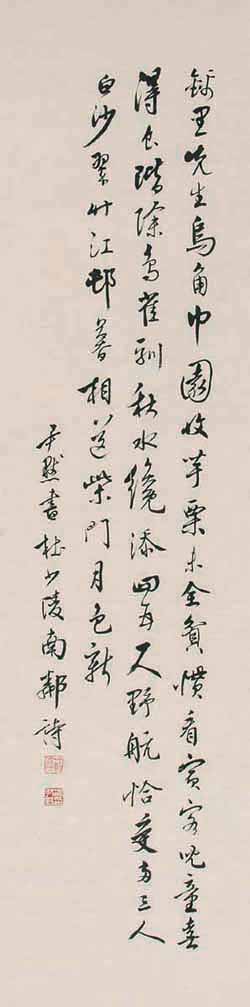 錦里先生烏角巾園收芋栗未全貧慣看賓客兒童喜
得食階除鳥雀馴秋水纔添四五尺野航恰受兩三人
白沙翠竹江邨暮相送柴門月色新
尹默書杜少陵南鄰詩